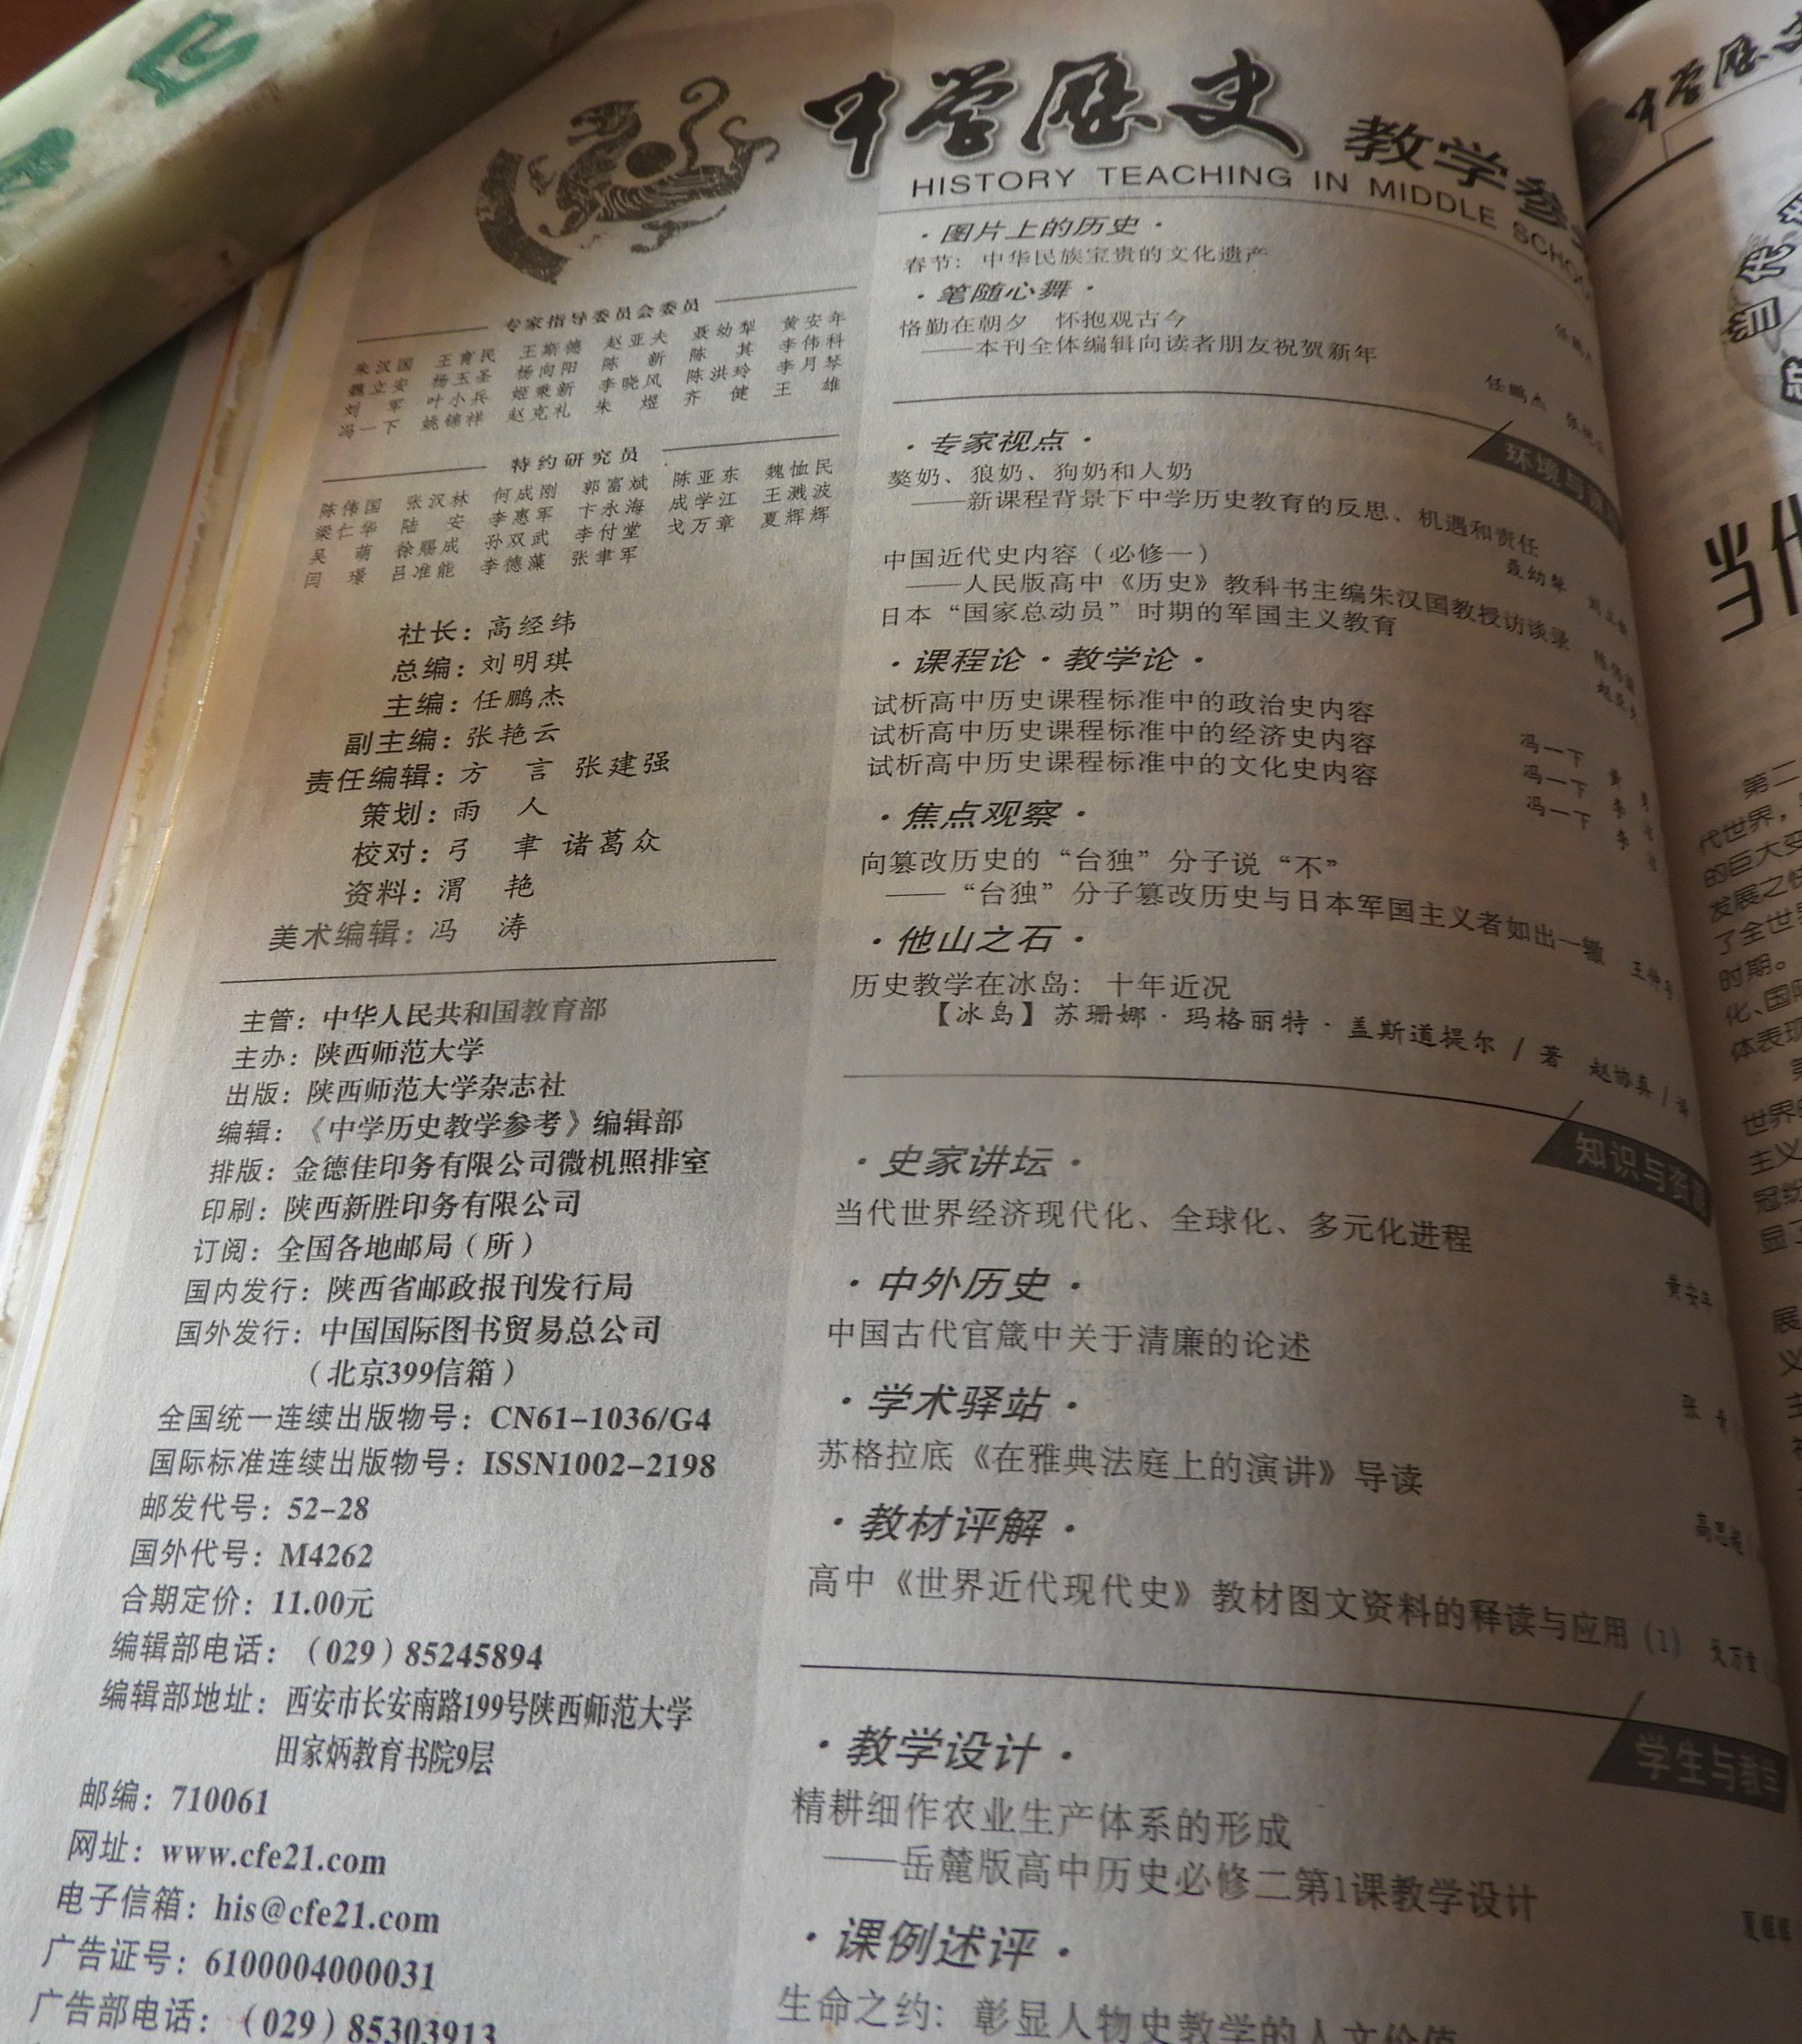 中学历史 教学参
HISTORY TEACHING IN MIDDLE SCHO
专家指导委员会委员
朱汉国 王育民 王斯德 赵亚夫 聂幼犁 黄安年
魏立安 杨玉圣 杨向阳 陈 新 陈 其 李伟科
刘 军 叶小兵 姬秉新 李晓风 陈洪玲 李月琴
冯一下 姚锦祥 赵克礼 朱 煜 齐 健 王 雄
特约研究员
陈伟国 张汉林 何成刚 郭富斌 陈亚东 魏恤民
梁仁华 陆 安 李惠军 卞永海 成学江 王溅波
吴 萌 徐赐成 孙双武 李付堂 戈万章 夏辉辉
闫 璟 吕准能 李德藻 张聿军
社长：高经纬
总编：刘明琪
主编：任鹏杰
副主编：张艳云
责任编辑：方 言 张建强
策划：雨 人
校对：弓 聿 诸葛众
资料：渭 艳
美术编辑：冯 涛
主管：中华人民共和国教育部
主办：陕西师范大学
出版：陕西师范大学杂志社
编辑：《中学历史教学参考》编辑部
排版：金德佳印务有限公司微机照排室
印刷：陕西新胜印务有限公司
订阅：全国各地邮局（所）
国内发行：陕西省邮政报刊发行局
国外发行：中国国际图书贸易总公司
（北京399信箱）
全国统一连续出版物号：CN61-1036/G4
国际标准连续出版物号：ISSN1002-2198
邮发代号：52-28
国外代号：M4262
合期定价：11.00元
编辑部电话：（029）85245894
编辑部地址：西安市长安南路199号陕西师范大学
田家炳教育书院9层
邮编：710061
网址：www.cfe21.com
电子信箱：his@cfe21.com
广告证号：6100004000031
广告部电话：（029）85303913
·图片上的历史·
春节：中华民族宝贵的文化遗产
·笔随心舞·
恪勤在朝夕 怀抱观古今
——本刊全体编辑向读者朋友祝贺新年
任鹏杰
环境与
·专家视点·
獒奶、狼奶、狗奶和人奶
——新课程背景下中学历史教育的反思、机遇和责任
聂幼犁
中国近代史内容（必修一）
——人民版高中《历史》教科书主编朱汉国教授访谈录
日本“国家总动员”时期的军国主义教育
·课程论·教学论·
试析高中历史课程标准中的政治史内容 冯一下
试析高中历史课程标准中的经济史内容 冯一下
试析高中历史课程标准中的文化史内容 冯一下
·焦点观察·
向篡改历史的“台独”分子说“不”
——“台独”分子篡改历史与日本军国主义者如出一辙
·他山之石·
历史教学在冰岛：十年近况
【冰岛】苏珊娜·玛格丽特·盖斯道提尔/著 赵协真/译
知识与资
·史家讲坛·
当代世界经济现代化、全球化、多元化进程
黄安年
·中外历史·
中国古代官箴中关于清廉的论述
张
·学术驿站·
苏格拉底《在雅典法庭上的演讲》导读
·教材评解·
高中《世界近代现代史》教材图文资料的释读与应用（1） 戈万章
学生与教
·教学设计·
精耕细作农业生产体系的形成
——岳麓版高中历史必修二第1课教学设计
夏辉辉
·课例述评·
生命之约：彰显人物史教学的人文价值
中学历史
当代
第二
代世界，
的巨大变
发展之快
了全世界
时期。
化、国际
体表现